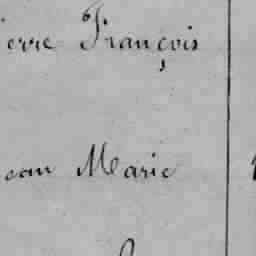 ierre François
ean Marie